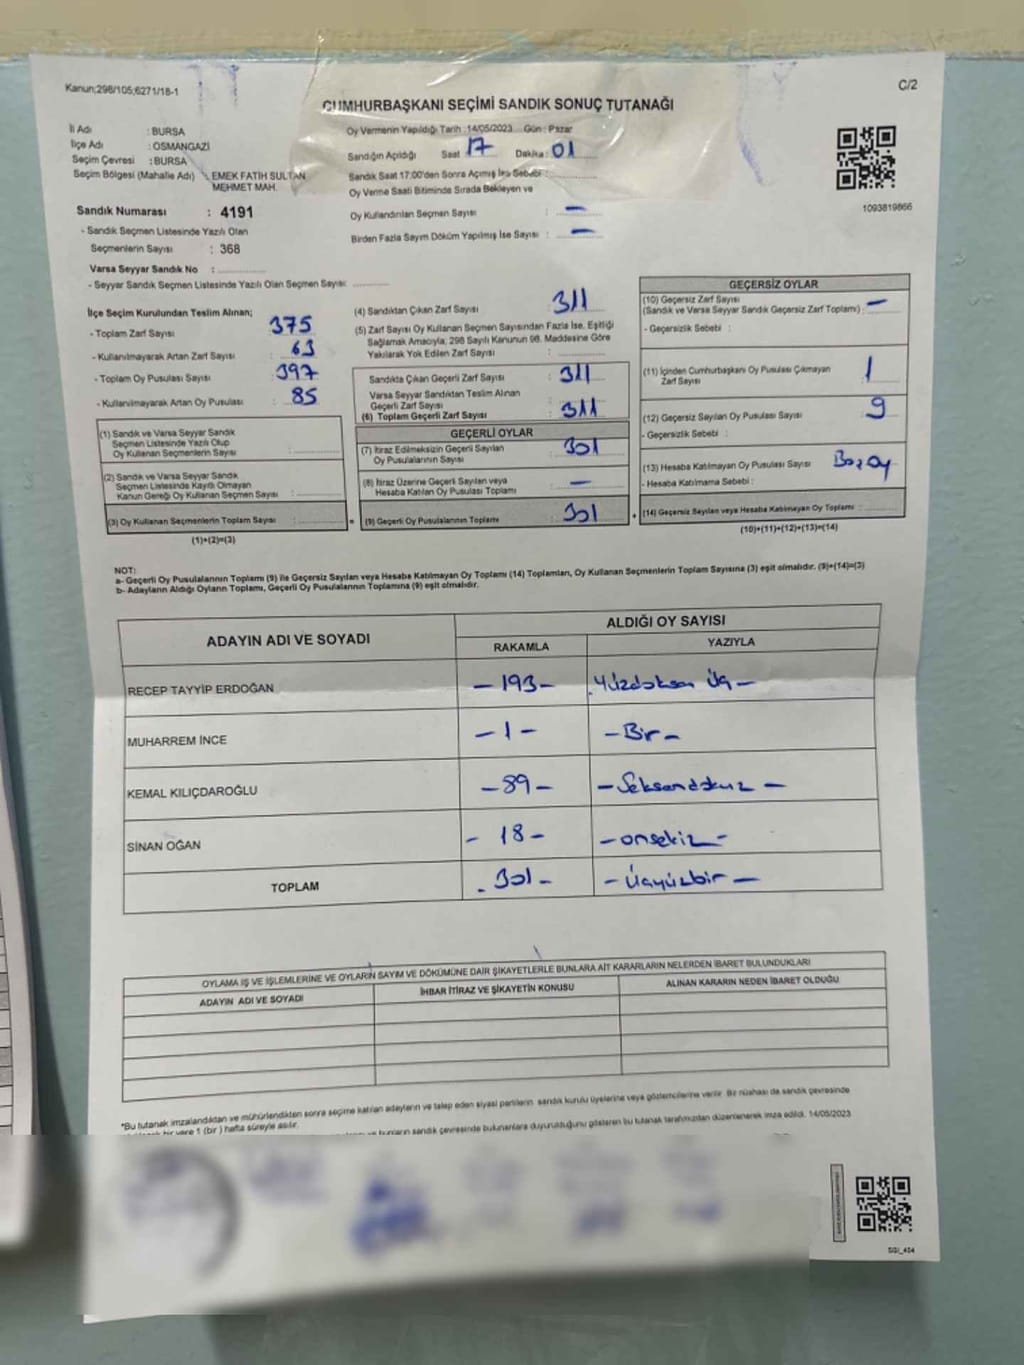 Kanun;298/105,6271/18-1
C/2
CUMHURBAŞKANI SEÇİMİ SANDIK SONUÇ TUTANAĞI
İl Adı : BURSA
İlçe Adı : OSMANGAZİ
Seçim Çevresi : BURSA
Seçim Bölgesi (Mahalle Adı) : EMEK FATİH SULTAN MEHMET MAH.
Sandık Numarası : 4191
- Sandık Seçmen Listesinde Yazılı Olan
Seçmenlerin Sayısı : 368
Varsa Seyyar Sandık No :
- Seyyar Sandık Seçmen Listesinde Yazılı Olan Seçmen Sayısı:
Oy Vermenin Yapıldığı Tarih :14/05/2023 Gün : Pazar
Sandığın Açıldığı Saat 17 Dakika : 01
Sandık Saat 17:00'den Sonra Açımış İse Sebebi :
Oy Verme Saati Bitiminde Sırada Bekleyen ve
Oy Kullandırılan Seçmen Sayısı : –
Birden Fazla Sayım Döküm Yapılmış İse Sayısı : –
1093819866
İlçe Seçim Kurulundan Teslim Alınan;
- Toplam Zarf Sayısı : 375
- Kullanılmayarak Artan Zarf Sayısı : 63
- Toplam Oy Pusulası Sayısı : 397
- Kullanılmayarak Artan Oy Pusulası : 85
(1) Sandık ve Varsa Seyyar Sandık
Seçmen Listesinde Yazılı Olup
Oy Kullanan Seçmenlerin Sayısı :
(2) Sandık ve Varsa Seyyar Sandık
Seçmen Listesinde Kayıtlı Olmayan
Kanun Gereği Oy Kullanan Seçmen Sayısı :
(3) Oy Kullanan Seçmenlerin Toplam Sayısı :
(1)+(2)=(3)
(4) Sandıktan Çıkan Zarf Sayısı : 311
(5) Zarf Sayısı Oy Kullanan Seçmen Sayısından Fazla İse, Eşitliği
Sağlamak Amacıyla, 298 Sayılı Kanunun 98. Maddesine Göre
Yakılarak Yok Edilen Zarf Sayısı :
Sandıkta Çıkan Geçerli Zarf Sayısı : 311
Varsa Seyyar Sandıktan Teslim Alınan
Geçerli Zarf Sayısı :
(6) Toplam Geçerli Zarf Sayısı : 311
GEÇERLİ OYLAR
(7) İtiraz Edilmeksizin Geçerli Sayılan
Oy Pusulalarının Sayısı : 301
(8) İtiraz Üzerine Geçerli Sayılan veya
Hesaba Katılan Oy Pusulası Toplamı : –
(9) Geçerli Oy Pusulalarının Toplamı : 301
GEÇERSİZ OYLAR
(10) Geçersiz Zarf Sayısı
(Sandık ve Varsa Seyyar Sandık Geçersiz Zarf Toplamı) : –
- Geçersizlik Sebebi :
(11) İçinden Cumhurbaşkanı Oy Pusulası Çıkmayan
Zarf Sayısı : 1
(12) Geçersiz Sayılan Oy Pusulası Sayısı : 9
- Geçersizlik Sebebi :
(13) Hesaba Katılmayan Oy Pusulası Sayısı :
- Hesaba Katılmama Sebebi :
(14) Geçersiz Sayılan veya Hesaba Katılmayan Oy Toplamı :
(10)+(11)+(12)+(13)=(14)
NOT:
a- Geçerli Oy Pusulalarının Toplamı (9) ile Geçersiz Sayılan veya Hesaba Katılmayan Oy Toplamı (14) Toplamları, Oy Kullanan Seçmenlerin Toplam Sayısına (3) eşit olmalıdır. (9)+(14)=(3)
b- Adayların Aldığı Oyların Toplamı, Geçerli Oy Pusulalarının Toplamına (9) eşit olmalıdır.
ADAYIN ADI VE SOYADI
ALDIĞI OY SAYISI
RAKAMLA YAZIYLA
RECEP TAYYİP ERDOĞAN – 193 – Yüzdoksan Üç –
MUHARREM İNCE – 1 – – Bir –
KEMAL KILIÇDAROĞLU – 89 – – Seksendokuz –
SİNAN OĞAN – 18 – – onsekiz –
TOPLAM . 301 – – Üçyüzbir –
OYLAMA İŞ VE İŞLEMLERİNE VE OYLARIN SAYIM VE DÖKÜMÜNE DAİR ŞİKAYETLERLE BUNLARA AİT KARARLARIN NELERDEN İBARET BULUNDUKLARI
ADAYIN ADI VE SOYADI İHBAR İTİRAZ VE ŞİKAYETİN KONUSU ALINAN KARARIN NEDEN İBARET OLDUĞU
*Bu tutanak imzalandıktan ve mühürlendikten sonra seçime katılan adayların ve talep eden siyasi partilerin sandık kurulu üyelerine veya gözlemcilerine verilir. Bir nüshası da sandık çevresinde
bir yere 1 (bir ) hafta süreyle asılır.
ve bunların sandık çevresinde bulunanlara duyurulduğunu gösteren bu tutanak tarafımızdan düzenlenerek imza edildi. 14/05/2023